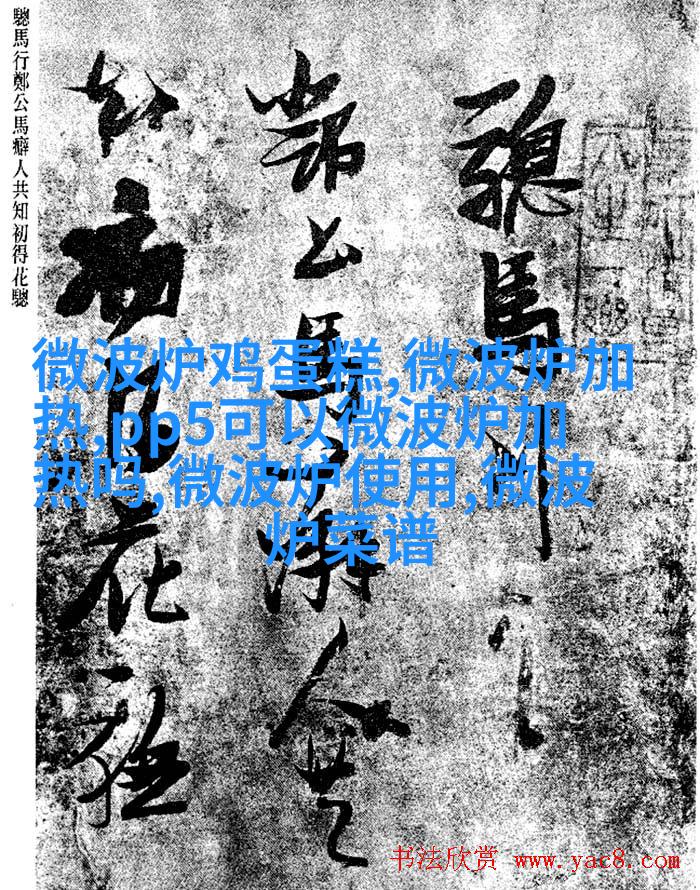 驄馬行鄭公馬癖人共知初得花驄
驄馬行
鄭公馬癖人共
知初得花驄
微波炉鸡蛋糕,微波炉加
热,pp5可以微波炉加
热吗,微波炉使用,微波
炉菜谱
书法欣赏 www.yac8.com